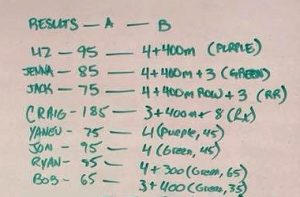 RESULTS - A - B
LIZ - 95 - 4+400m (PURPLE)
JENNA - 85 - 4+400m+3 (GREEN)
JACK - 75 - 4+400m ROW+3 (RR)
CRAIG - 185 - 3+400m+8 (Rx)
75 - 4 (Purple, 45)
JON - 95 - 4 (Green, 45)
RYAN - 95 - 4+300 (Green, 65)
BOB - 65 - 3+400 (Green, 35)